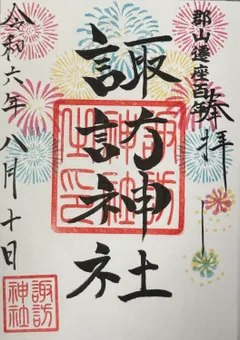 郡山遷座百年
奉拝
諏訪神社
令和六年八月十日
諏訪神社